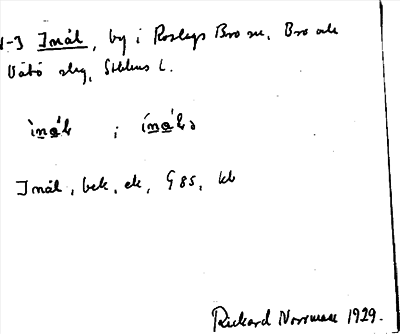 1-3 Inål, by i Roslags Bro sn, Bro och
Vätö slg, Sthlms l.
ìnå̀l ; ínå̀lə
Inål, bek, ek, G 85, kb
Rickard Norrman 1929.